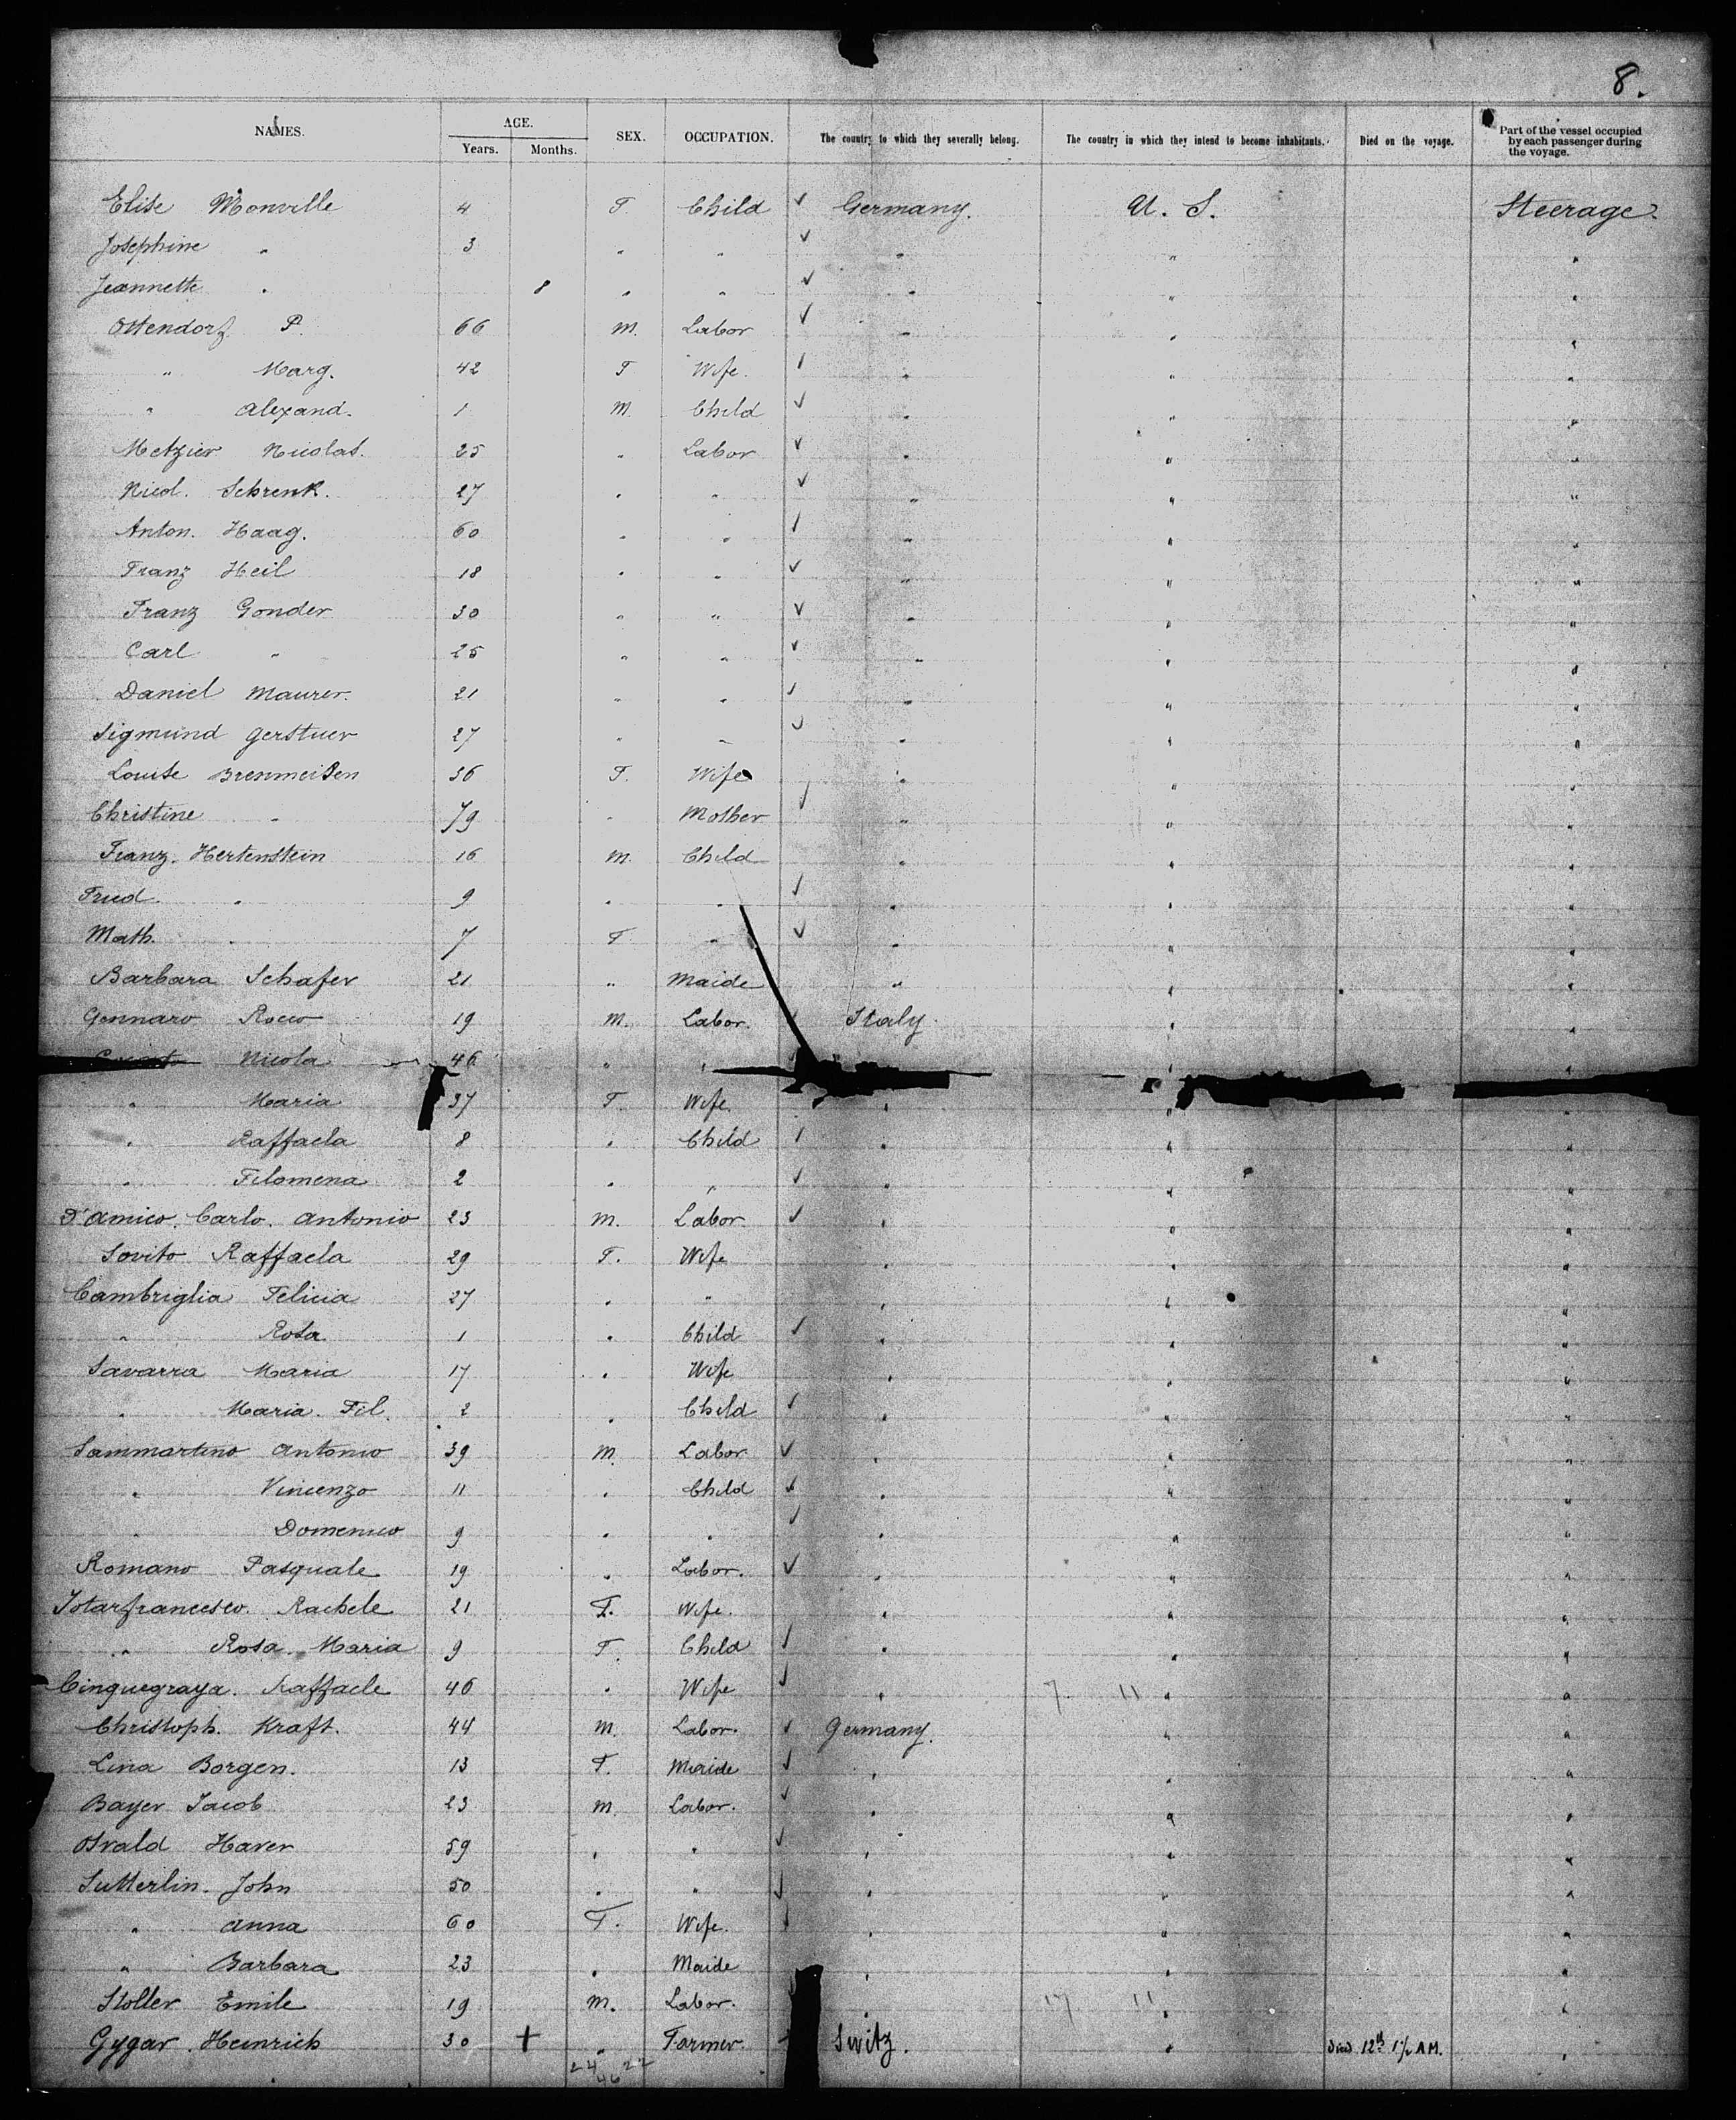 8.
NAMES. AGE. SEX. OCCUPATION. The country to which they severally belong. The country in which they intend to become inhabitants. Died on the voyage. Part of the vessel occupied by each passenger during the voyage.
Years. Months.
Elise Monville 4 F. Child ✓ Germany. U. S. Steerage
Josephine " 3 " " ✓ " " "
Jeannette " 8 " " ✓ " " "
Ottendorf P. 66 M. Labor ✓ " " "
" Marg. 42 F Wife. ✓ " " "
" Alexand. 1 M. Child ✓ " " "
Metzier Nicolas. 25 " Labor ✓ " " "
Nicol. Schrenk. 27 " " ✓ " " "
Anton. Haag. 60 " " ✓ " " "
Franz Heil 18 " " ✓ " " "
Franz Gonder 30 " " ✓ " " "
Carl " 25 " " ✓ " " "
Daniel Maurer. 21 " " ✓ " " "
Sigmund Gerstuer 27 " " ✓ " " "
Louise 36 F. Wife " " "
Christine " 79 " Mother ✓ " " "
Franz. Hertenstein 16 M. Child " " "
Fried. " 9 " " ✓ " " "
Math. " 7 F " ✓ " " "
Barbara Schafer 21 " Maide " " "
Gennaro Rocco 19 M. Labor. ✓ Italy. " "
Nicola 46 " " " "
" Maria 37 F. Wife " " "
" Raffaela 8 " Child ✓ " " "
" Filomena 2 " " ✓ " " "
D'Amico. Carlo. Antonio 23 M. Labor ✓ " " "
Sovito Raffaela 29 F. Wife " " "
Cambriglia Felicia 27 " " " " "
" Rosa 1 " Child ✓ " " "
Savarra Maria 17 " Wife " " "
" Maria. Fil. 2 " Child ✓ " " "
Sammartino Antonio 39 M. Labor ✓ " " "
" Vincenzo 11 " Child ✓ " " "
" Domenico 9 " " ✓ " " "
Romano Pasquale 19 " Labor. ✓ " " "
Totarfrancesco. Rachele 21 F. Wife. " " "
" Rosa Maria 9 F. Child ✓ " " "
Cinquegraya. Raffaele 46 " Wife ✓ " 7 11 " "
Christoph. Kraft. 44 M. Labor. ✓ Germany. " "
Lina Borgen. 13 F. Maide ✓ " " "
Bayer Jacob 23 M. Labor. ✓ " " "
Osvald Haver 59 " " ✓ " " "
Sutterlin. John 50 " " ✓ " " "
" Anna 60 F. Wife. ✓ " " "
" Barbara 23 " Maide " " "
Stoller Emile 19 M. Labor. " 17 11 " "
Gygar. Heinrich 30 + " Farmer. Switz. " Died 12th 1½ AM. "
24 46 22